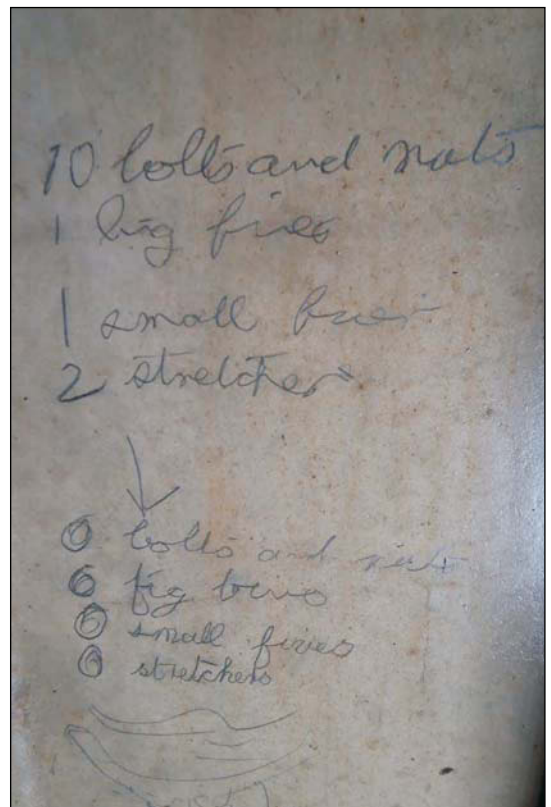 10 bolts and nuts
1 big fires
1 small
2 stretchers
0 bolts and nuts
0 fig
0 small fires
0 stretchers